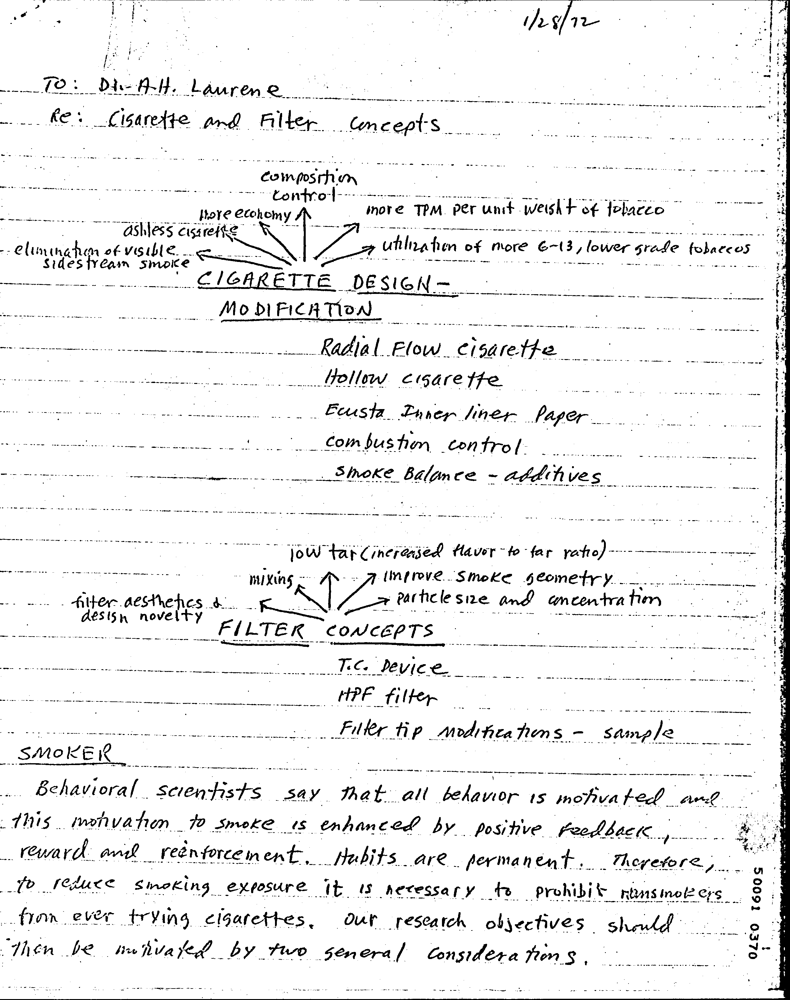 1/28/72
TO: Dr. A.H. Laurene
Re: Cigarette and Filter Concepts
composition
control
more economy
more TPM per unit weight of tobacco
ashless cigarette
utilization of more G-13, lower grade tobaccos
elimination of visible
sidestream smoke
CIGARETTE DESIGN-
MODIFICATION
Radial Flow cigarette
Hollow cigarette
Ecusta Inner liner Paper
combustion control
smoke Balance - additives
low tar (increased flavor to tar ratio)
mixing
improve smoke geometry
particle size and concentration
filter aesthetics &
design novelty
FILTER CONCEPTS
T.C. Device
HPF filter
Filter tip modifications - sample
SMOKER
Behavioral scientists say that all behavior is motivated and
this motivation to smoke is enhanced by positive feedback,
reward and reenforcement. Habits are permanent. Therefore,
to reduce smoking exposure it is necessary to prohibit nonsmokers
from ever trying cigarettes. Our research objectives should
then be motivated by two general considerations.
50091 0370